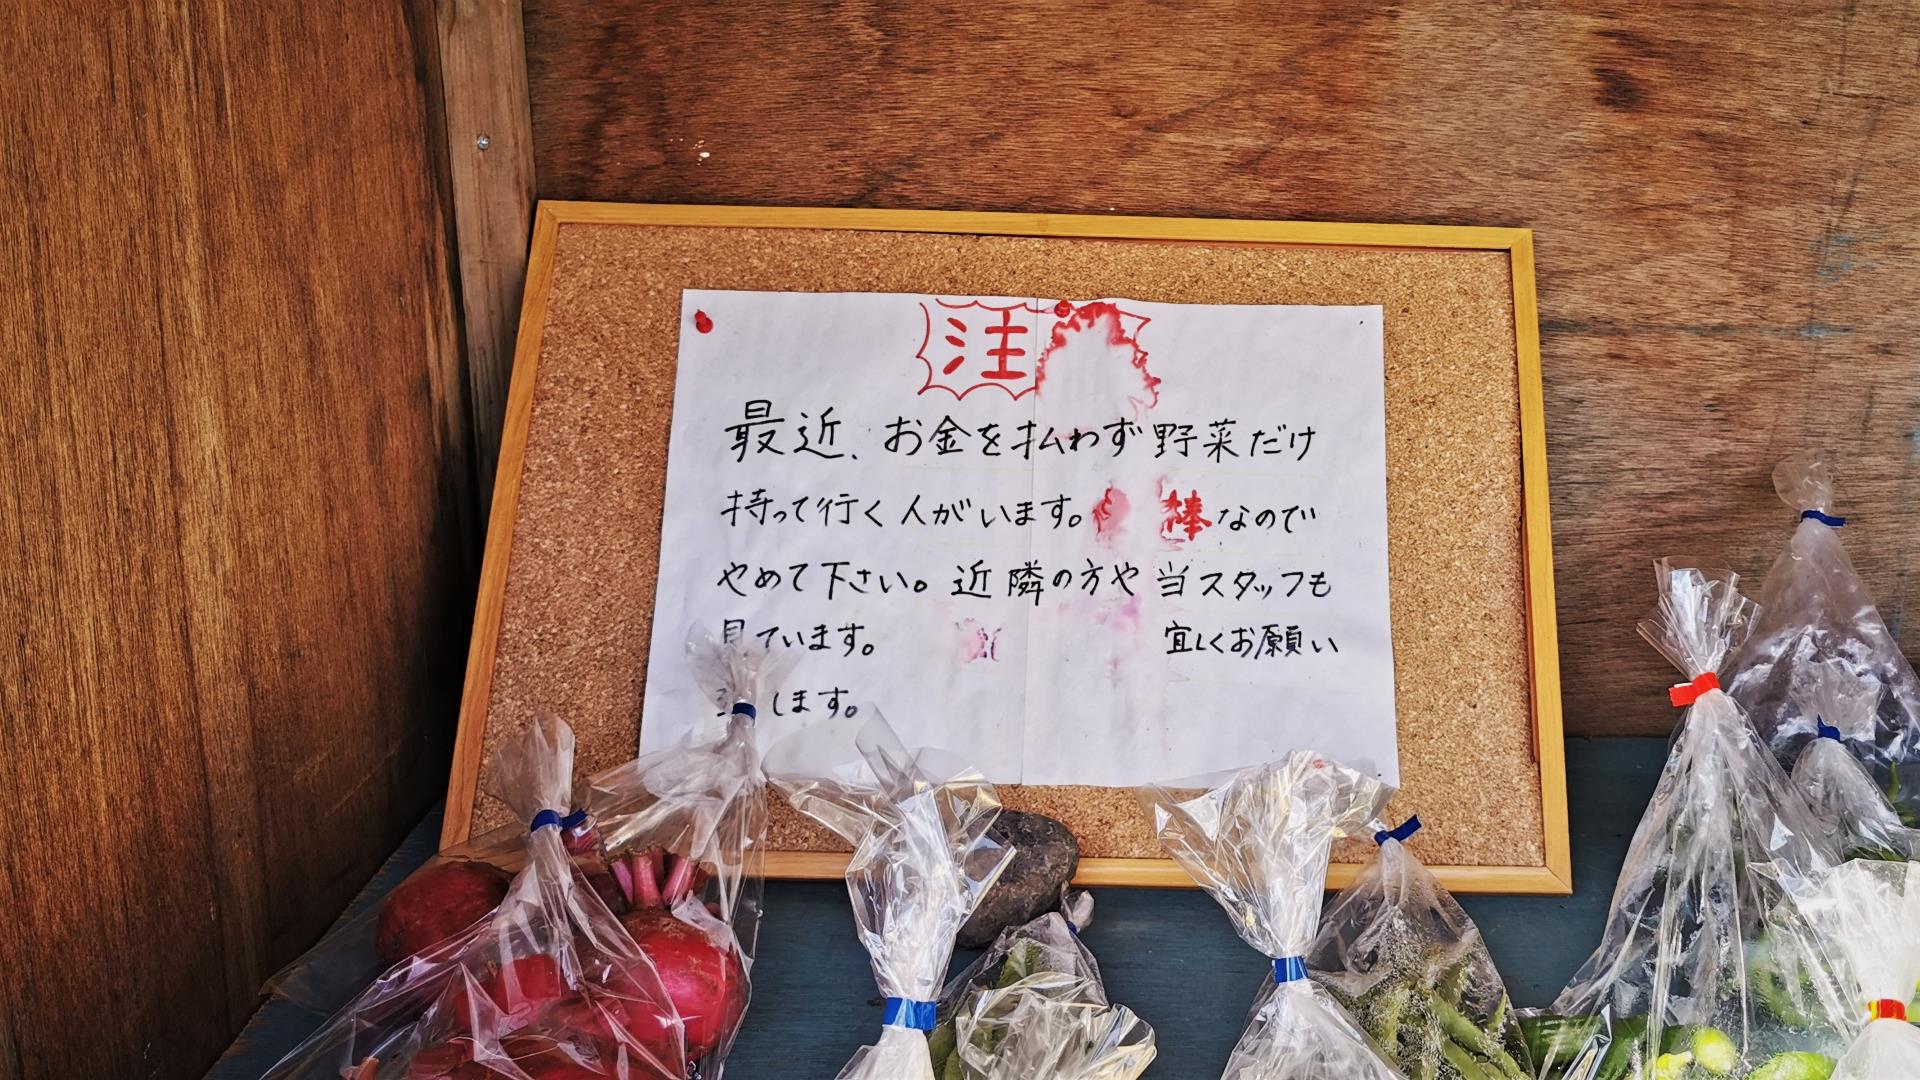 注
最近、お金を払わず野菜だけ
持って行く人がいます。 棒なので
やめて下さい。近隣の方や当スタッフも
見ています。 宜しくお願い
します。